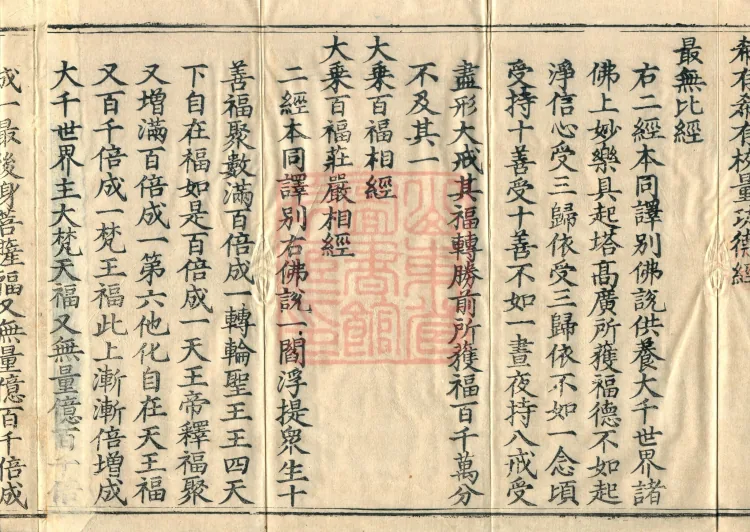 希有希有校量功德經
最無比經
右二經本同譯別佛說供養大千世界諸
佛上妙樂具起塔高廣所獲福德不如起
淨信心受三歸依受三歸依不如一念頃
受持十善受十善不如一晝夜持八戒受
盡形大戒其福轉勝前所獲福百千萬分
不及其一
大乘百福相經
大乘百福莊嚴相經
二經本同譯別右佛說一閻浮提衆生十
善福聚數滿百倍成一轉輪聖王王四天
下自在福如是百倍成一天王帝釋福聚
又增滿百倍成一第六他化自在天王福
又百千倍成一梵王福此上漸漸倍增成
大千世界主大梵天福又無量億百千倍
成一最後身菩薩福又無量億百千倍成